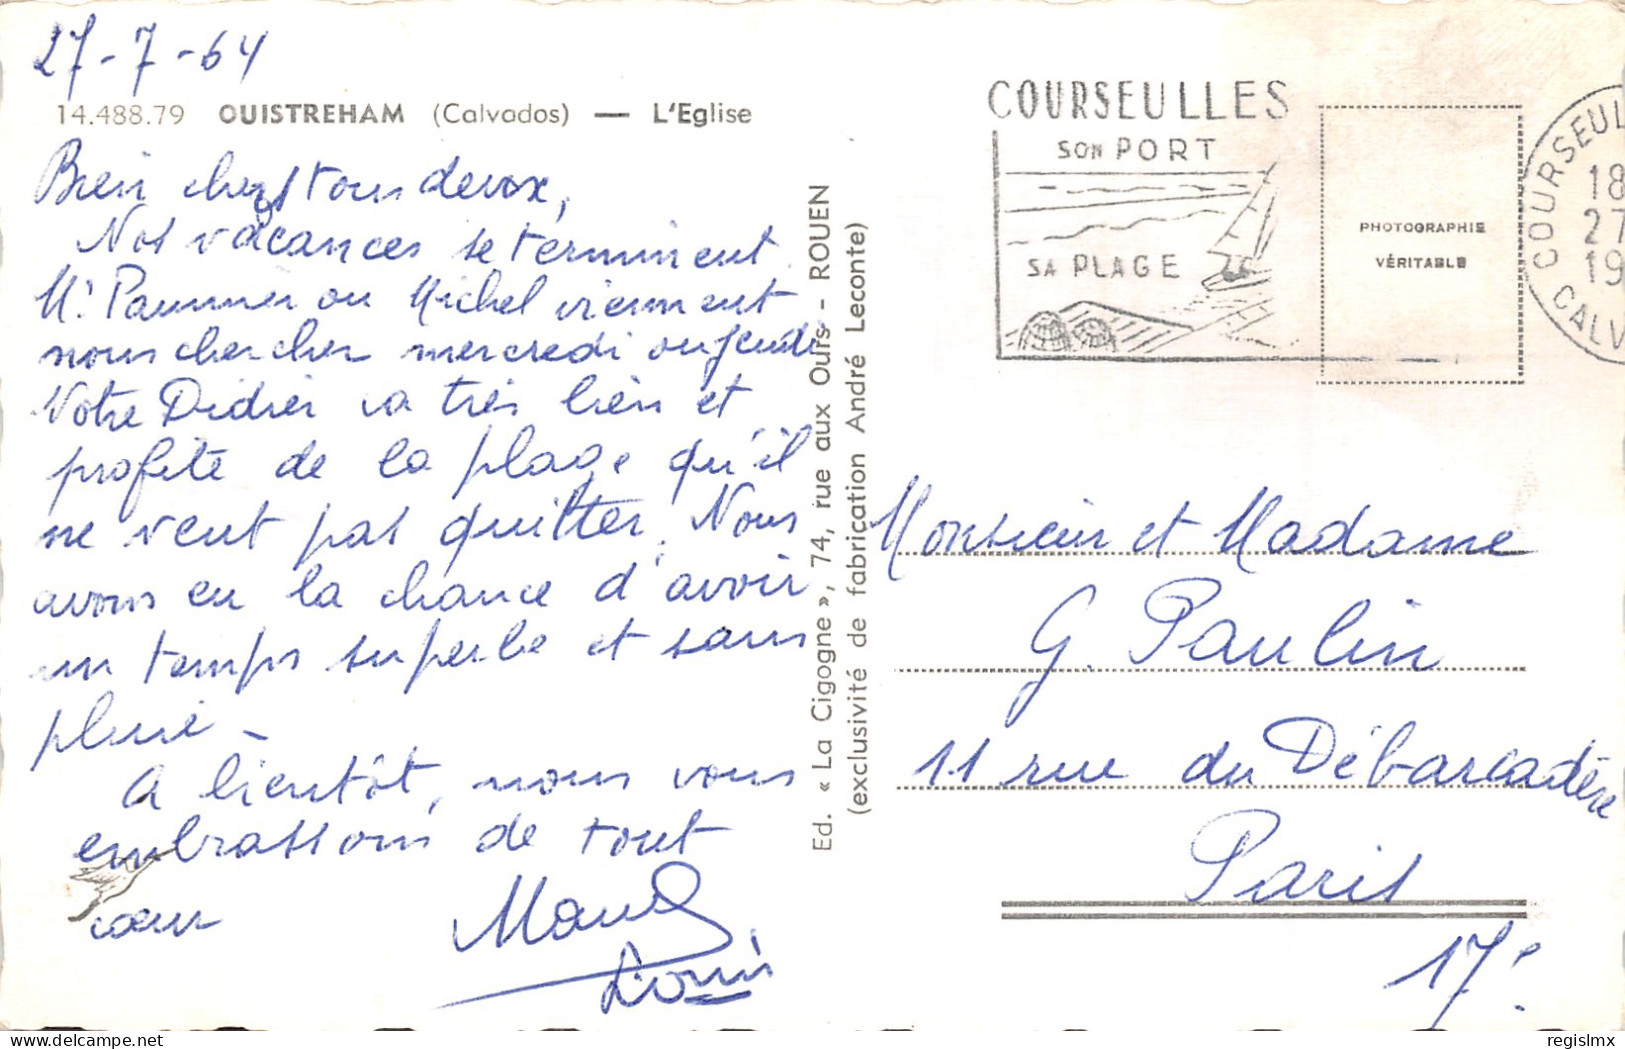 27-7-64
14.488.79 OUISTREHAM (Calvados) — L'Eglise
Bien chers tous deux,
Nos vacances se terminent
Mr Paumier ou Michel viennent
nous chercher mercredi ou jeudi
Votre Didier va très bien et
profite de la plage qu'il
ne veut pas quitter. Nous
avons eu la chance d'avoir
un temps superbe et sans
pluie -
A bientôt, nous vous
embrassons de tout
cœur
Louis
Ed. « La Cigogne », 74, rue aux Ours - ROUEN
(exclusivité de fabrication André Leconte)
COURSEULLES
SON PORT
SA PLAGE
PHOTOGRAPHIE
VÉRITABLE
COURSEUL
18
27
19
CALV
Monsieur et Madame
G. Paulin
11 rue du Débarcadère
Paris
17e
delcampe.net
regislmx